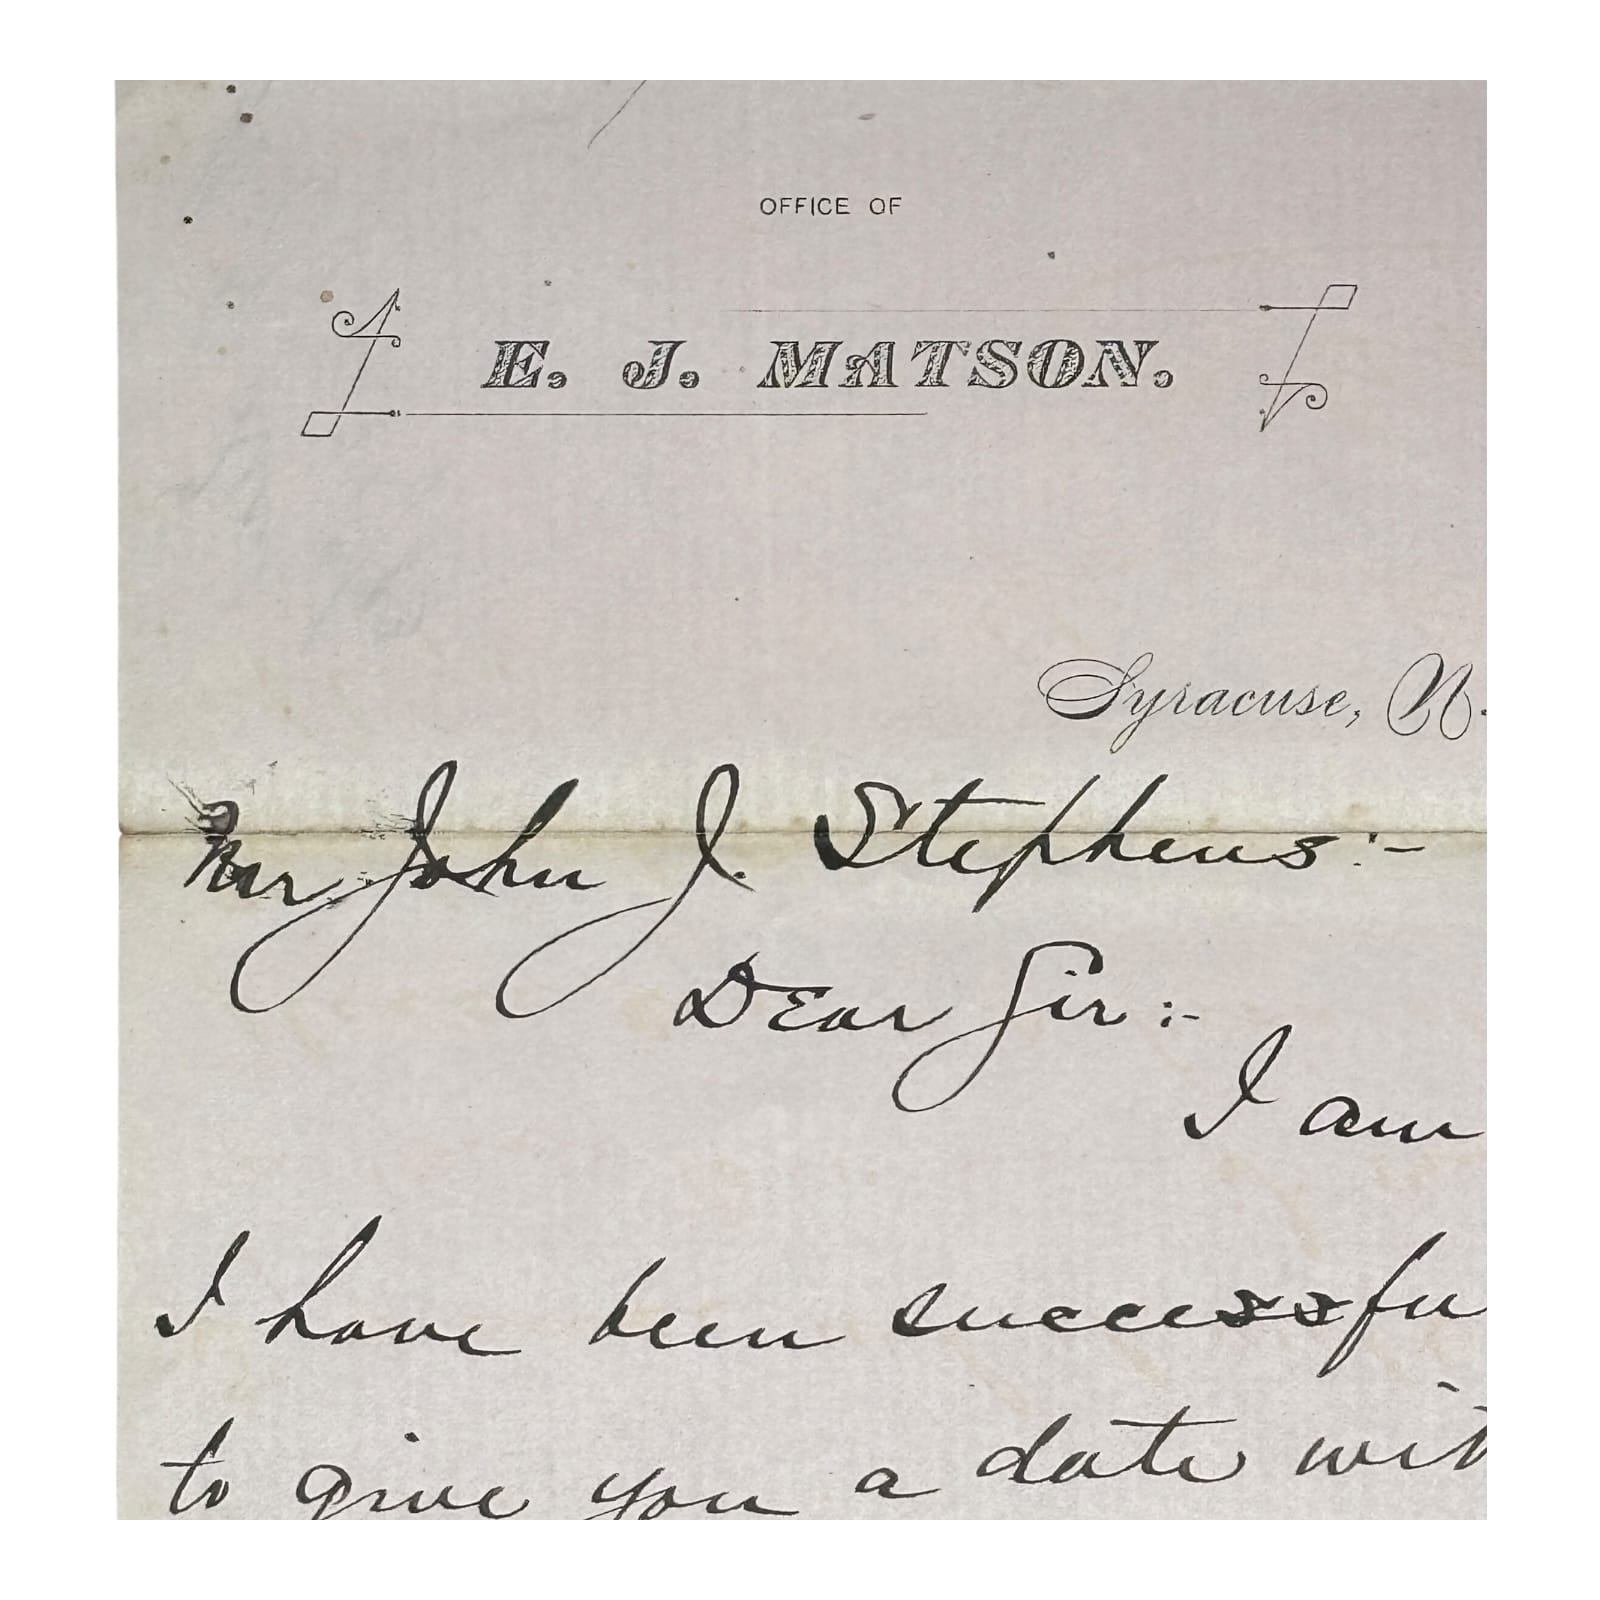 OFFICE OF
E. J. MATSON.
Syracuse, N.
Mr John J. Stephens:-
Dear Sir:-
I am
I have been successfu
to give you a date wit